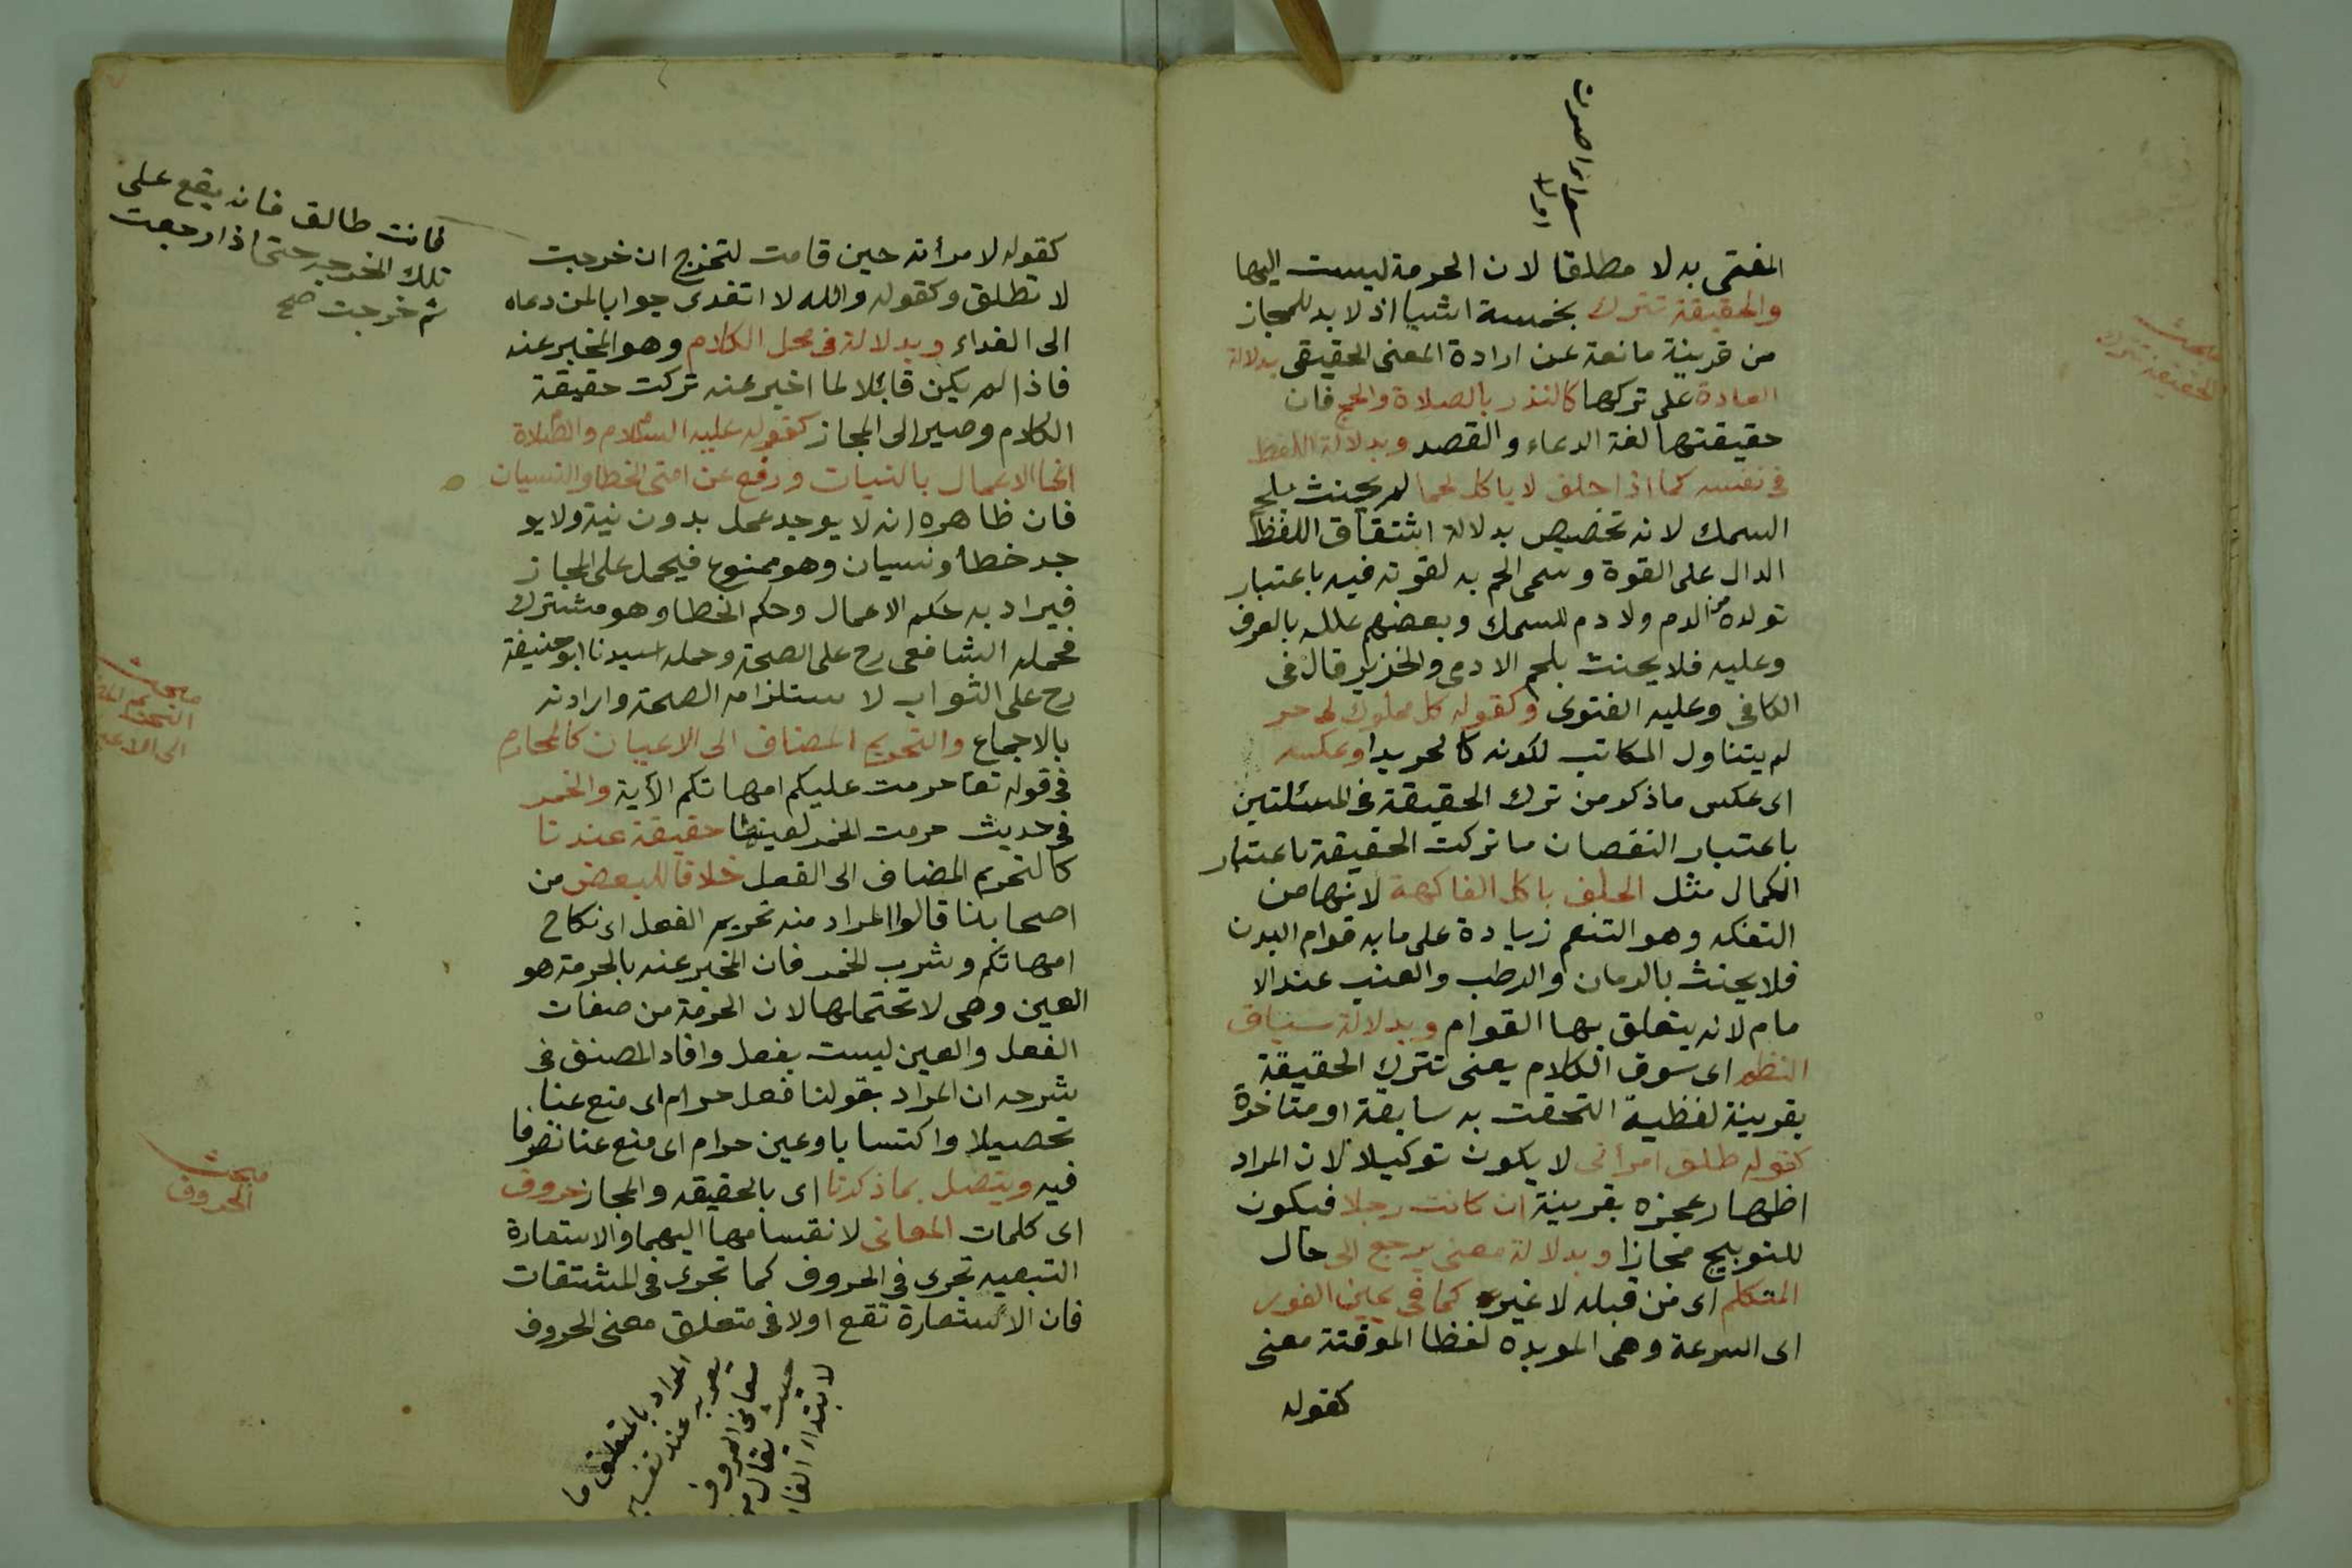 المفتى به لا مطلقا لان الحرمة ليست اليها
والحقيقة تترك بخمسة اشيا اذ لا بد للمجاز
من قرينة مانعة عن ارادة المعنى الحقيقى بدلالة
العادة على تركها كالنذر بالصلاة والحج فان
حقيقتها لغة الدعاء والقصد وبدلالة اللفظ
فى نفسه كما اذا حلف لا ياكل لحما لم يحنث بلحم
السمك لانه تخصيص بدلالة اشتقاق اللفظ
الدال على القوة وسمى الحم به لقوته فيه باعتبار
تولده من الدم ولا دم للسمك وبعضهم علله بالعرف
وعليه فلا يحنث بلحم الادمى والخنزير قال فى
الكافى وعليه الفتوى وكقوله كل مملوك لى حر
لم يتناول المكاتب لكونه كالحر يدا وعكسه
اى عكس ما ذكر من ترك الحقيقة فى المسئلتين
باعتبار النقصان ما تركت الحقيقة باعتبار
الكمال مثل الحلف باكل الفاكهة لانها من
التفكه وهو التنعم زيادة على ما به قوام البدن
فلا يحنث بالرمان والرطب والعنب عند الا
مام لانه يتعلق بها القوام وبدلالة سياق
النظم اى سوق الكلام يعنى تترك الحقيقة
بقرينة لفظية التحقت به سابقة او متاخرة
كقوله طلق امرأتى لا يكون توكيلا لان المراد
اظهار عجزه بقرينة ان كانت رجلا فيكون
للتوبيخ مجازا وبدلالة معنى يرجع الى حال
المتكلم اى من قبله لا غير كما فى يمين الفور
اى السرعة وهى المويده لفظا الموقتة معنى
كقوله
مبحث
الحقيقة تترك
كقوله لامرأته حين قامت لتخرج ان خرجت
لا تطلق وكقوله والله لا اتغدى جوابا لمن دعاه
الى الغداء وبدلالة فى محل الكلام وهو المخبر عنه
فاذا لم يكن قابلا لما اخبر عنه تركت حقيقة
الكلام وصير الى المجاز كقوله عليه السلام والصلاة
انما الاعمال بالنيات ورفع عن امتى الخطا والنسيان
فان ظاهره انه لا يوجد عمل بدون نية ولا يو
جد خطا ونسيان وهو ممنوع فيحمل على المجاز
فيراد به حكم الاعمال وحكم الخطا وهو مشترك
فحمله الشافعى رح على الصحة وحمله سيدنا ابو حنيفة
رح على الثواب لاستلزامه الصحة وارادته
بالاجماع والتحريم المضاف الى الاعيان كالمحارم
فى قوله تعا حرمت عليكم امهاتكم الآية والخمر
فى حديث حرمت الخمر لعينها حقيقة عندنا
كالتحريم المضاف الى الفعل خلافا للبعض من
اصحابنا قالوا المراد منه تحريم الفعل اى نكاح
امهاتكم وشرب الخمر فان المخبر عنه بالحرمة هو
العين وهى لا تحتملها لان الحرمة من صفات
الفعل والعين ليست بفعل وافاد المصنف فى
شرحه ان المراد بقولنا فعل حرام اى منع عنا
تحصيلا واكتسابا وعين حرام اى منع عنا تصرفا
فيه ويتصل بما ذكرنا اى بالحقيقه والمجاز حروف
اى كلمات المعانى لانقسامها اليهما والاستعارة
التبعيه تجرى فى الحروف كما تجرى فى المشتقات
فان الاستعارة تقع اولا فى متعلق معنى الحروف
فانت طالق فانه يقع على
تلك الخرجه حتى اذا رجعت
ثم خرجت صح
مبحث
التحريم
الى الاعيان
مبحث
الحروف
المراد بالمتعلق ما
يعبر به عند تفسير
معانى الحروف
حيث يقال من
لابتداء